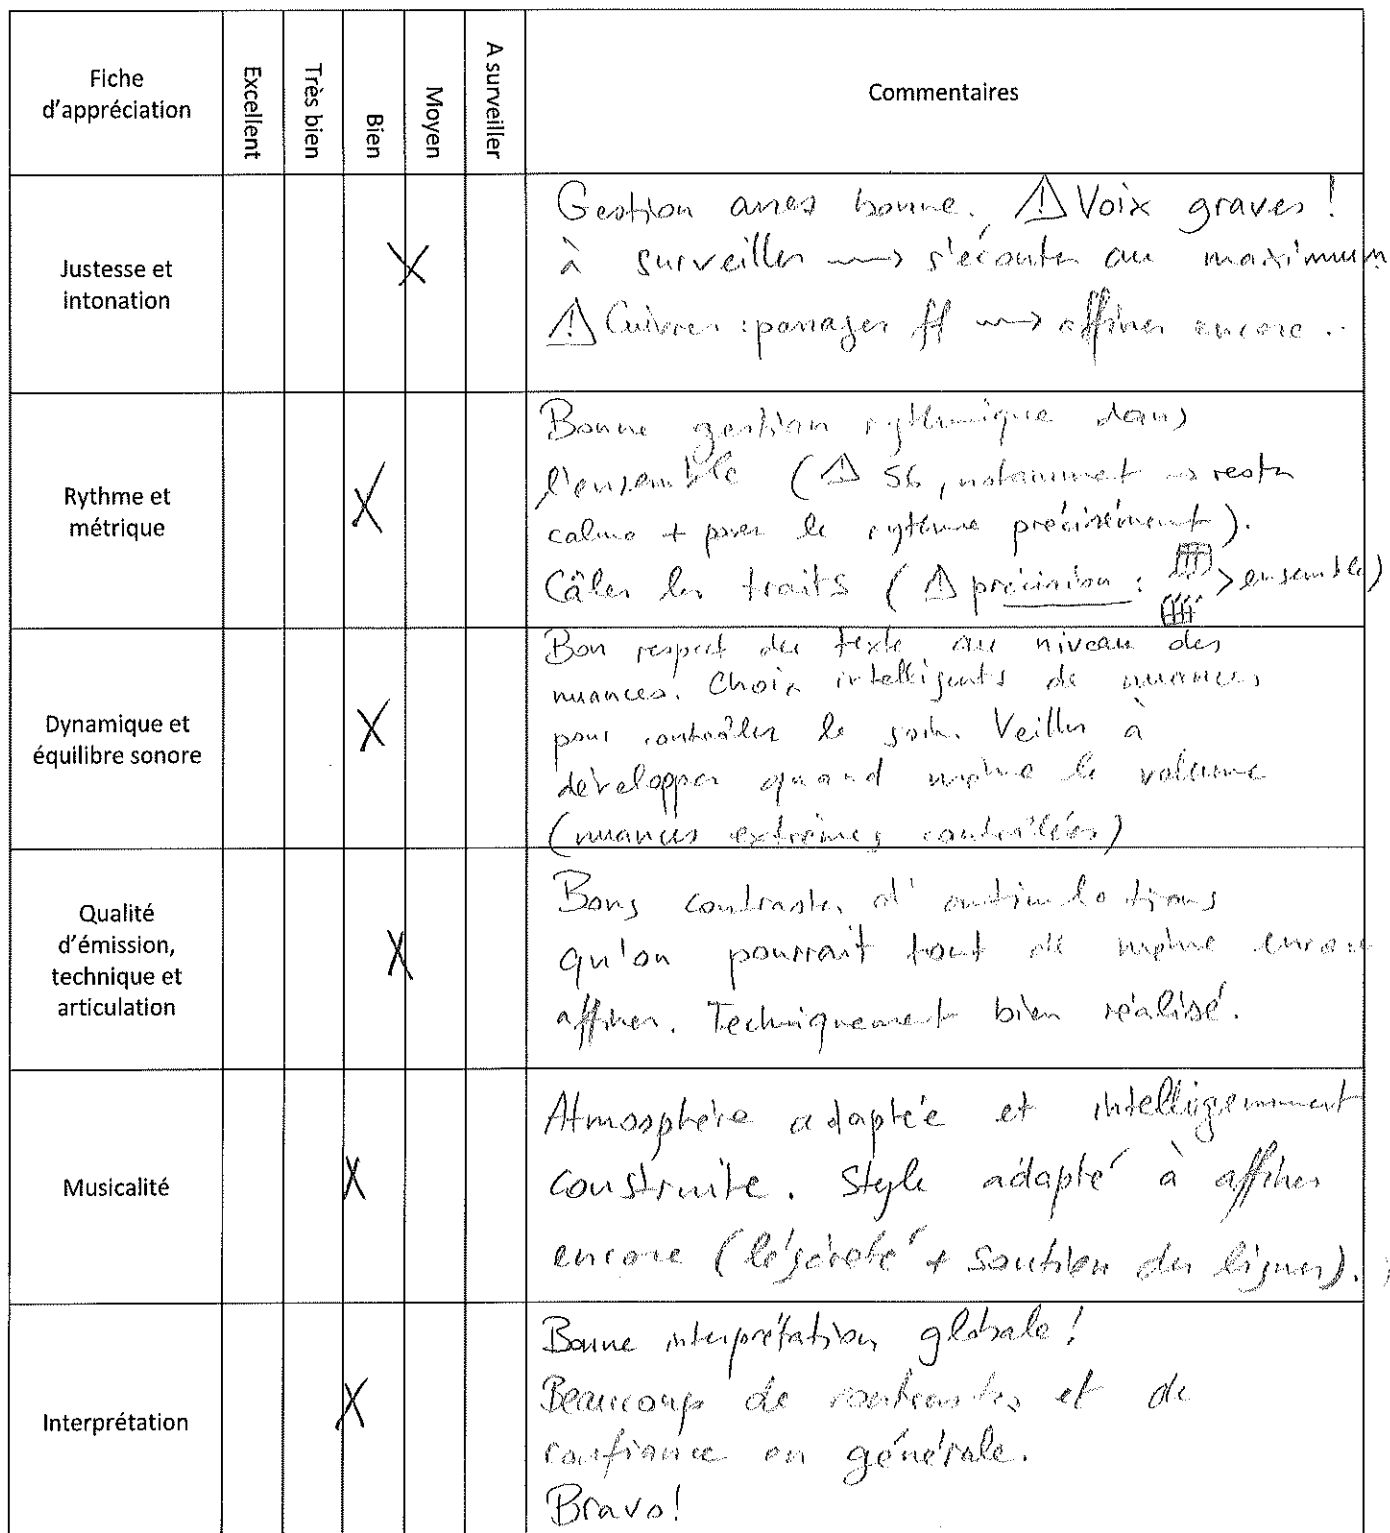 Fiche
d'appréciation
Excellent
Très bien
Bien
Moyen
A surveiller
Commentaires
Justesse et
intonation
Gestion assez bonne. ⚠ Voix graves !
à surveiller → s'écouter au maximum
⚠ Cuivres : passages ff → affiner encore ..
Rythme et
métrique
Bonne gestion rythmique dans
l'ensemble (⚠ 56, notamment → rester
calme + poser le rythme précisément).
Câler les traits (⚠ précision : > ensemble)
Dynamique et
équilibre sonore
Bon respect du texte au niveau des
nuances. Choix intelligents de nuances
pour contrôler le son. Veiller à
développer quand même le volume
(nuances extrêmes contrôlées)
Qualité
d'émission,
technique et
articulation
Bons contrastes d'articulations
qu'on pourrait tout de même encore
affiner. Techniquement bien réalisé.
Musicalité
Atmosphère adaptée et intelligemment
construite. Style adapté à affiner
encore (légèreté + soutien des lignes).
Interprétation
Bonne interprétation globale !
Beaucoup de contrastes et de
confiance en générale.
Bravo !